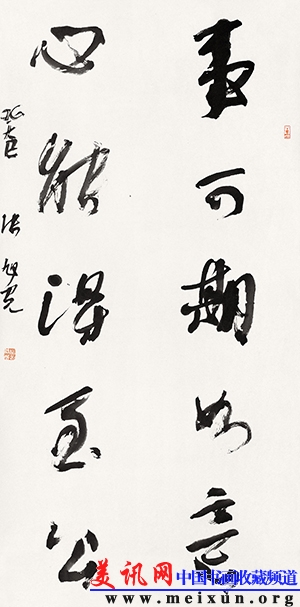 事可期如意
心能得至公
张旭光
美讯网 中国书画收藏频道
www.meixun.org